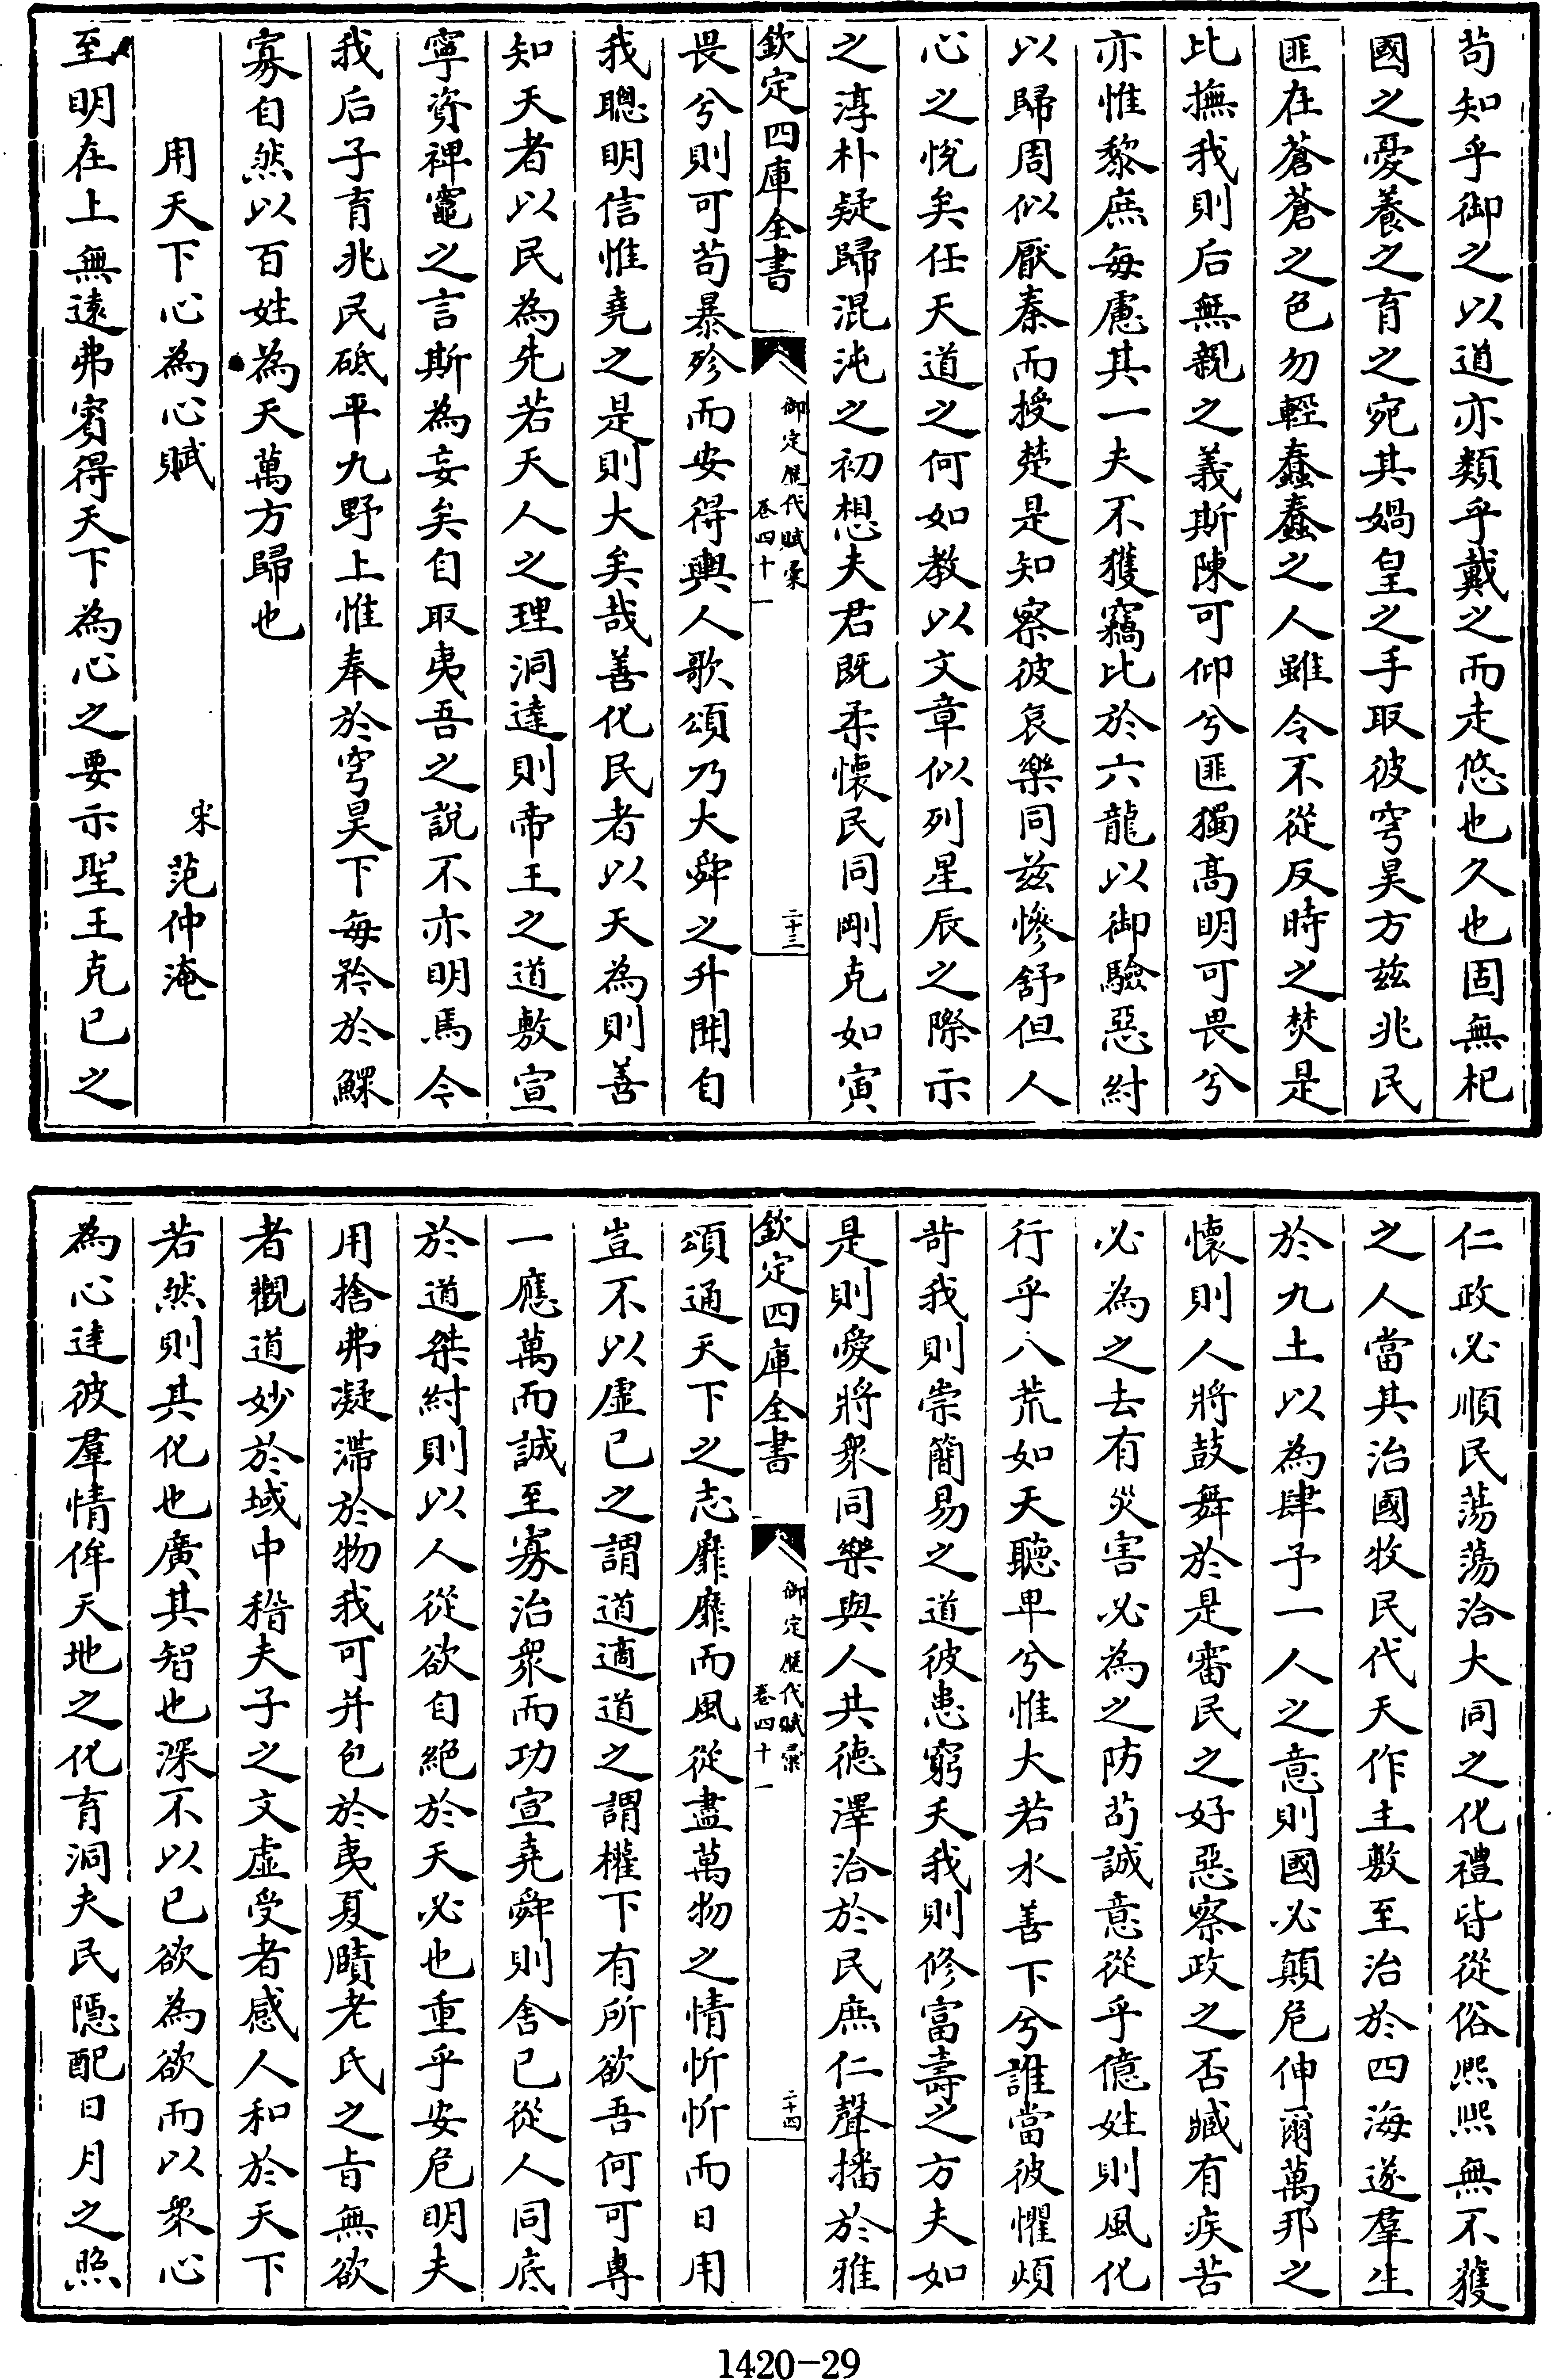 苟知乎御之以道亦類乎戴之而走悠也久也固無杞
國之憂養之育之宛其媧皇之手取彼穹昊方兹兆民
匪在蒼蒼之色勿輕蠢蠢之人雖令不從反時之焚是
比撫我則后無親之義斯陳可仰兮匪獨高明可畏兮
亦惟黎庶每慮其一夫不獲竊比於六龍以御驗惡紂
以歸周似厭秦而授楚是知察彼哀樂同兹慘舒但人
心之悅矣任天道之何如教以文章似列星辰之際示
之淳朴疑歸混沌之初想夫君既柔懷民同剛克如寅
欽定四庫全書
御定歷代賦彙
卷四十一
二十三
畏兮則可苟暴殄而安得輿人歌頌乃大舜之升聞自
我聰明信惟堯之是則大矣哉善化民者以天為則善
知天者以民為先若天人之理洞達則帝王之道敷宣
寧資裨竈之言斯為妄矣自取夷吾之說不亦明焉今
我后子育兆民砥平九野上惟奉於穹昊下每矜於鰥
寡自然以百姓為天萬方歸也
用天下心為心賦
宋 范仲淹
至明在上無遠弗賓得天下為心之要示聖王克已之
仁政必順民蕩蕩洽大同之化禮皆從俗熙熙無不獲
之人當其治國牧民代天作主敷至治於四海遂羣生
於九土以為肆予一人之意則國必顛危伸爾萬邦之
懷則人將鼓舞於是審民之好惡察政之否臧有疾苦
必為之去有災害必為之防苟誠意從乎億姓則風化
行乎八荒如天聽卑兮惟大若水善下兮誰當彼懼煩
苛我則崇簡易之道彼患窮夭我則修富壽之方夫如
是則愛將衆同樂與人共德澤洽於民庶仁聲播於雅
欽定四庫全書
御定歷代賦彙
卷四十一
二十四
頌通天下之志靡靡而風從盡萬物之情忻忻而日用
豈不以虛已之謂道適道之謂權下有所欲吾何可專
一應萬而誠至寡治衆而功宣堯舜則舍已從人同底
於道桀紂則以人從欲自絕於天必也重乎安危明夫
用捨弗凝滯於物我可并包於夷夏賾老氏之旨無欲
者觀道妙於域中稽夫子之文虛受者感人和於天下
若然則其化也廣其智也深不以已欲為欲而以衆心
為心達彼羣情侔天地之化育洞夫民隱配日月之照
1420-29